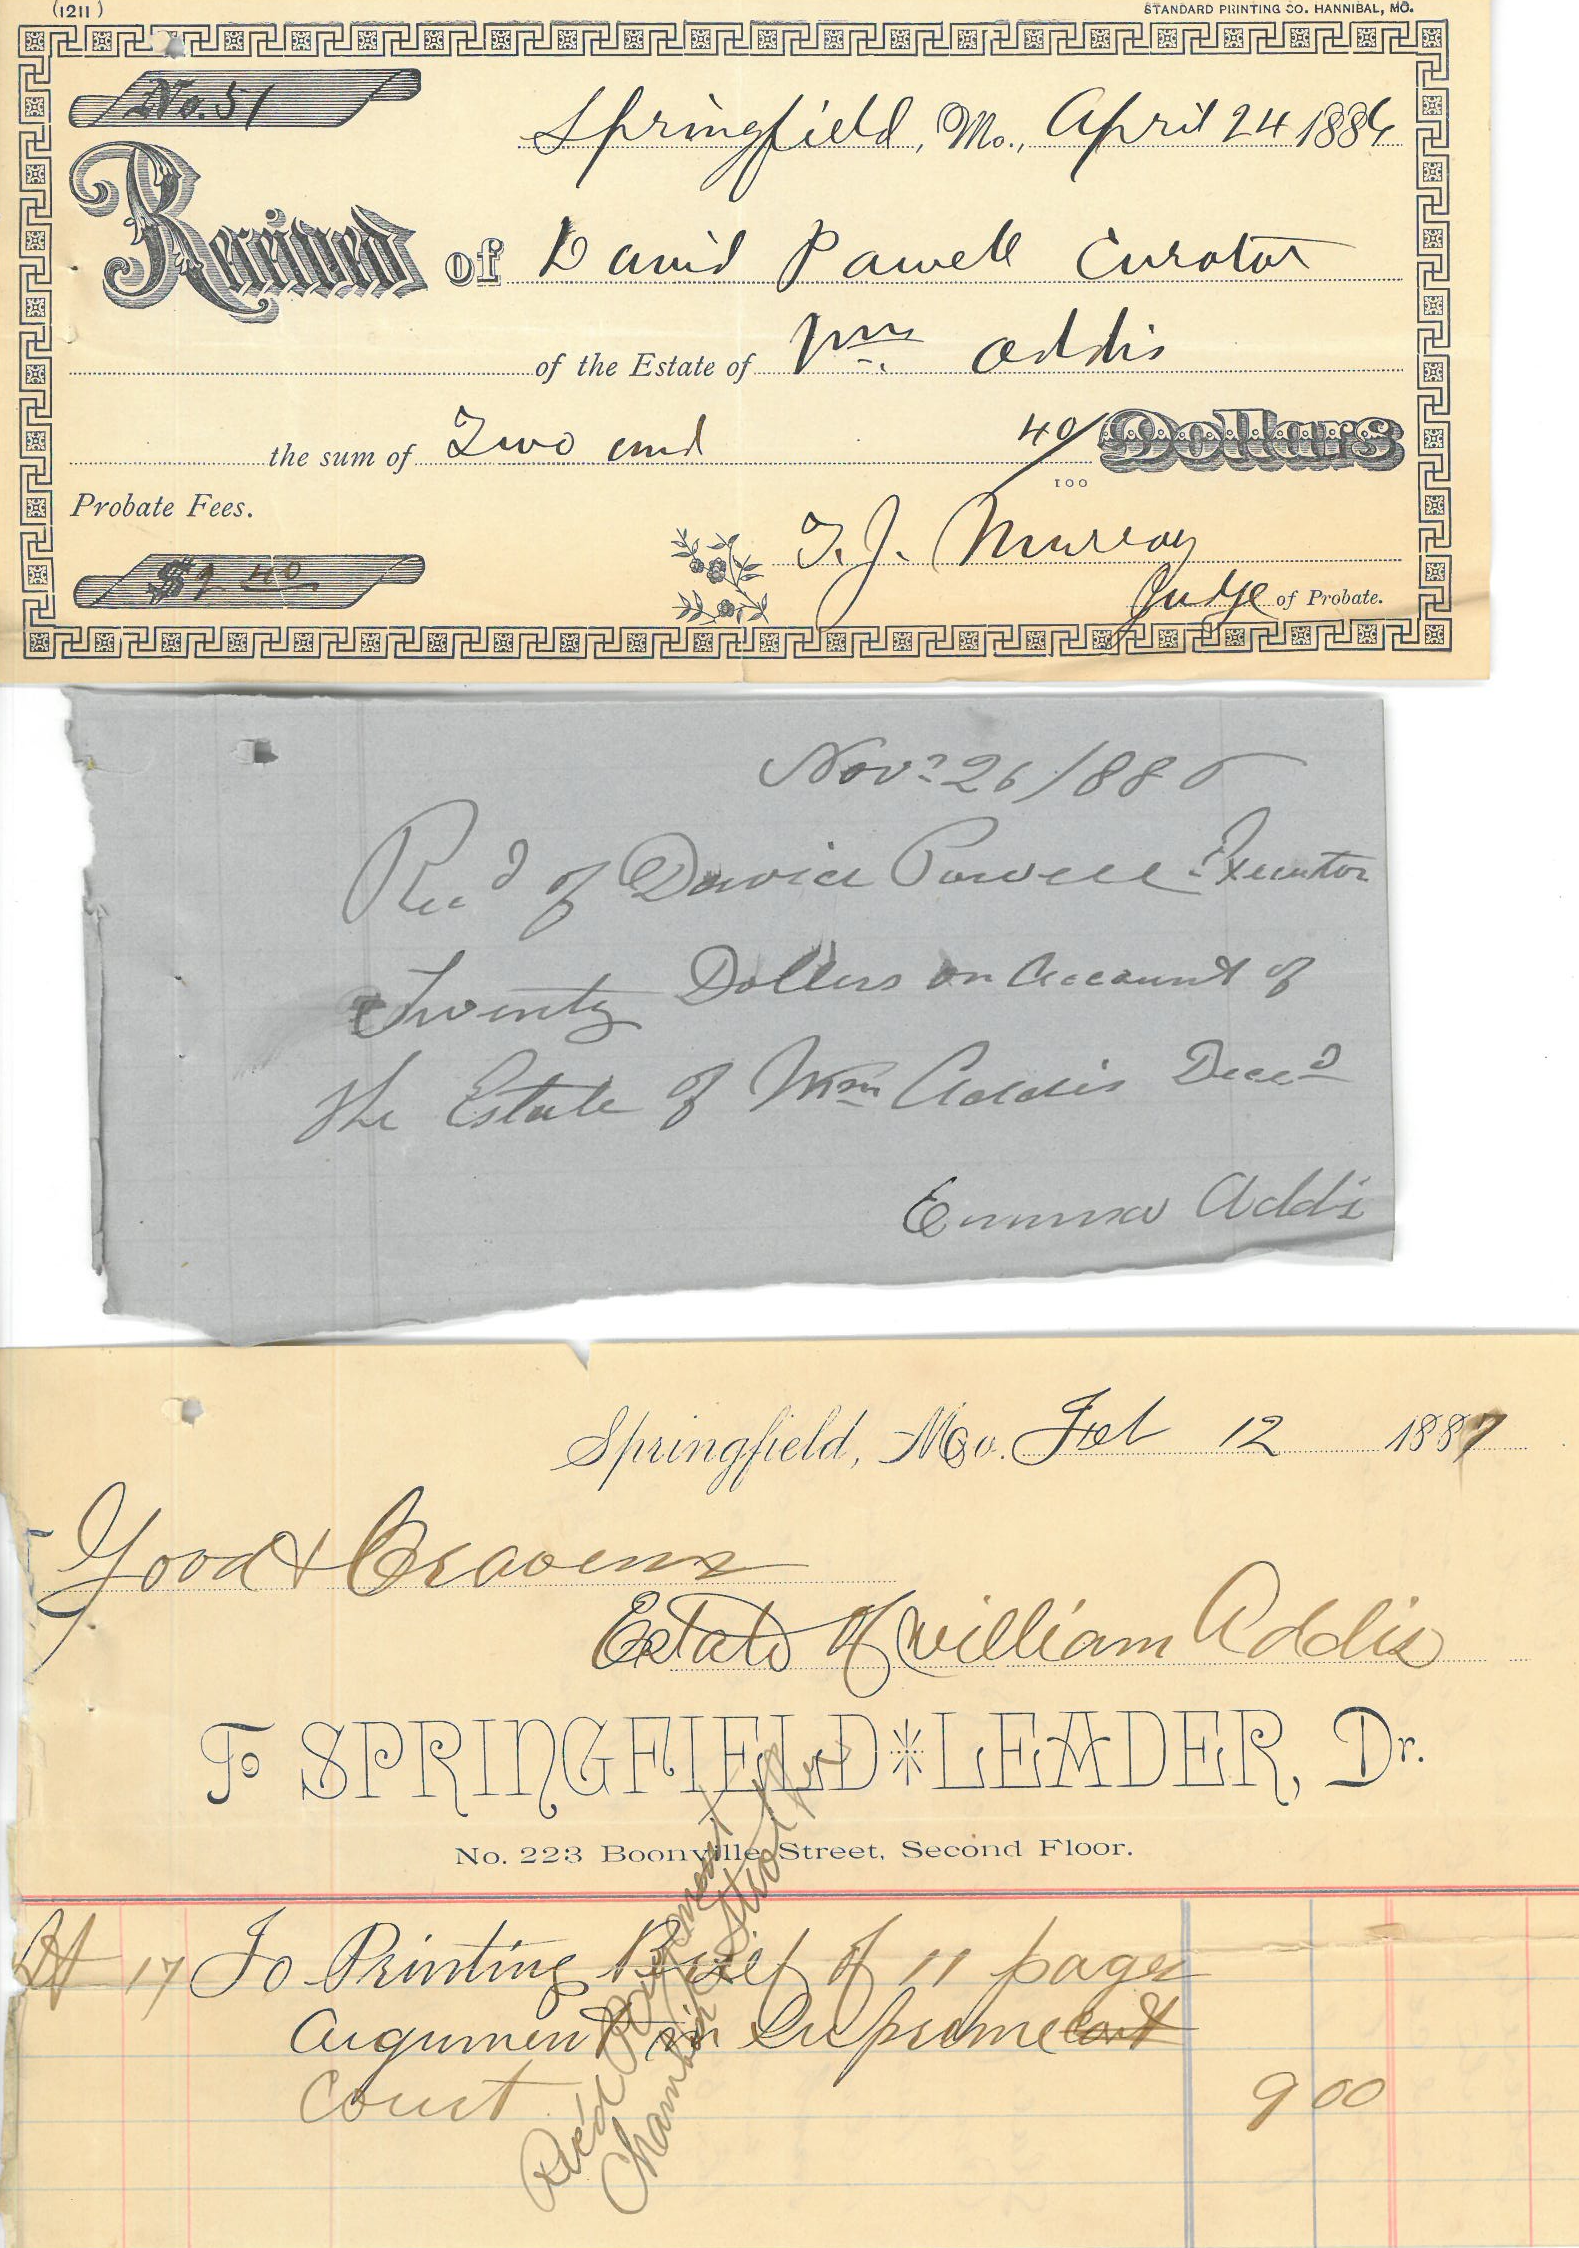 (1211)
STANDARD PRINTING CO. HANNIBAL, MO.
No. 51
Springfield, Mo., April 24 1886
Received of David Powell Curator
of the Estate of Wm Addis
the sum of Two and 40/100 Dollars
Probate Fees.
T. J. Murray
$2 40
Judge of Probate.
Novr 26/1885
Recd of David Powell Executor
Twenty Dollers on Account of
the Estate of Wm Addis Decd
Emma Addis
Springfield, Mo. Feb 12 1887
Good & Cravens
Estate of William Addis
To SPRINGFIELD LEADER, Dr.
No. 223 Boonville Street, Second Floor.
17 To Printing Brief of 11 pages
Argument in Supreme Court
Court 9 00
Rec'd Payment